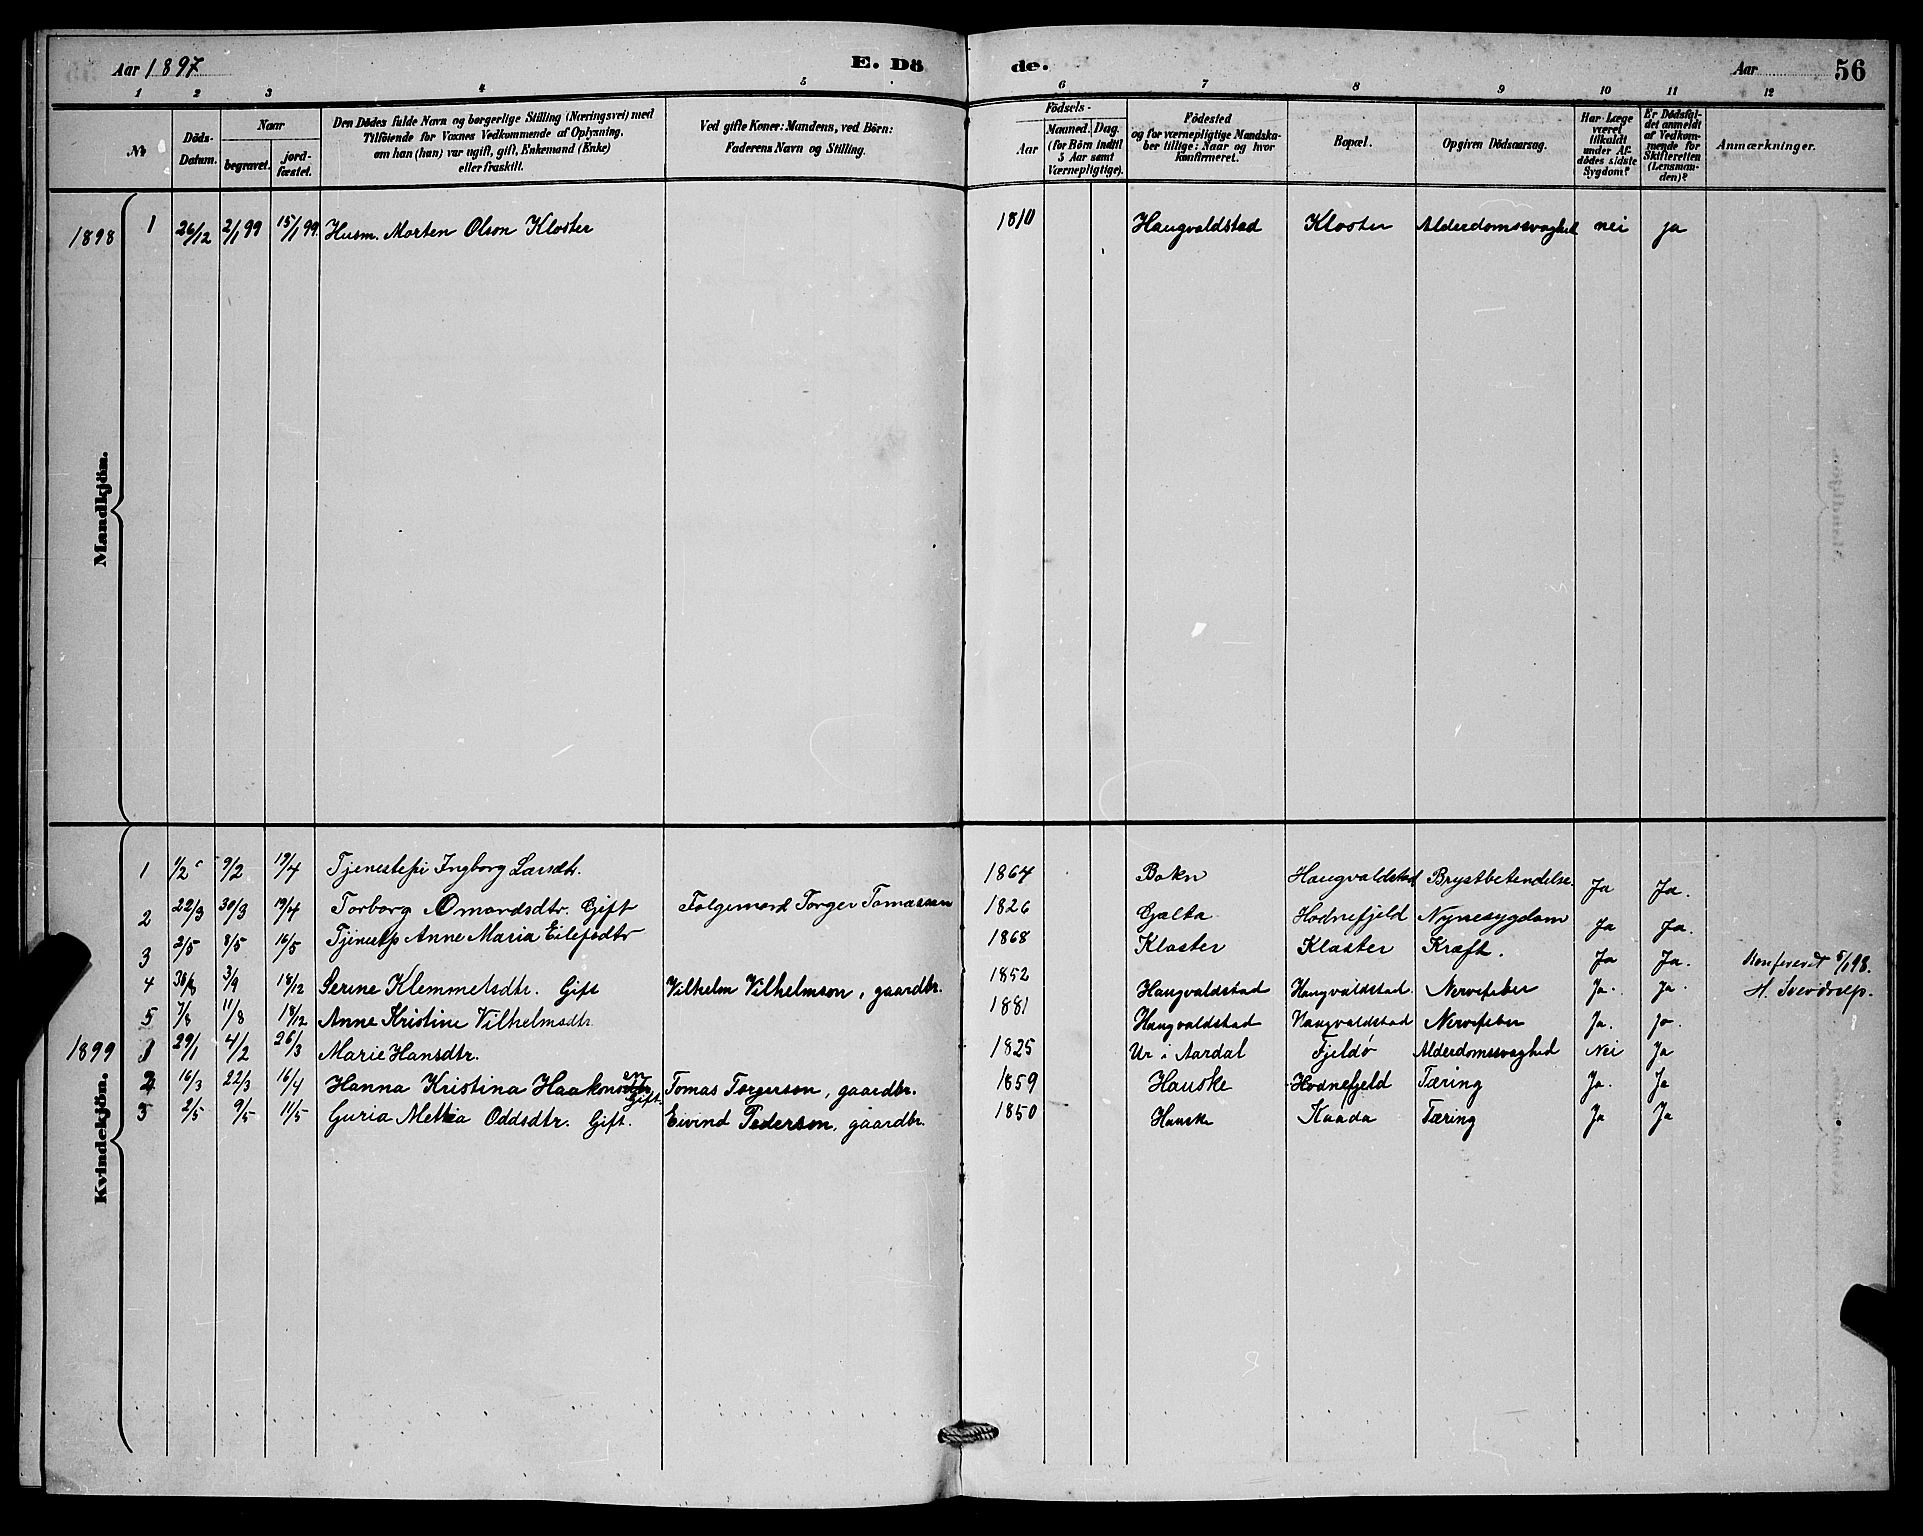 Aar 1897 E. Dö de. Aar 56
1 2 3 4 5 6 7 8 9 10 11 12
№
Döds-Datum.
Naar
begravet.
jord-fæstet.
Den Dödes fulde Navn og borgerlige Stilling (Næringsvei) med
Tilföiende for Voxnes Vedkommende af Oplysning,
om han (hun) var ugift, gift, Enkemand (Enke)
eller fraskilt.
Ved gifte Koner: Mandens, ved Börn:
Faderens Navn og Stilling.
Födsels-
Aar
Maaned. Dag.
(for Börn indtil
5 Aar samt
Værnepligtige).
Födested
og for værnepligtige Mandska-
ber tillige: Naar og hvor
konfirmeret.
Bopæl.
Opgiven Dödsaarsag.
Har Læge
været
tilkaldt
under Af-
dödes sidste
Sygdom?
Er Dödsfal-
det anmeldt
af Vedkom-
mende for
Skifteretten
(Lensman-
den)?
Anmærkninger.
Mandkjön.
1898 1 26/12 2/1 99 15/1 99 Husm. Morten Olson Kloster 1810 Haugvaldstad Kloster Alderdomssvaghed nei ja
Kvindekjön.
1 1/2 9/2 19/4 Tjenestepi Ingborg Larsdtr. 1864 Bokn Haugvaldstad Brystbetendelse. Ja Ja.
2 22/3 30/3 19/4 Torborg Omondsdtr. Gift Folgemand Torger Tomassen 1826 Gjalta Hodnefjeld Nyresygdom Ja Ja.
3 2/5 8/5 16/5 Tjenestp Anne Maria Eilefsdtr 1868 Kloster Kloster Kræft. Ja Ja.
4 30/8 3/9 18/12 Serine Klemmetsdtr. Gift Vilhelm Vilhelmson, gaardbr. 1852 Haugvaldstad Haugvaldstad. Nervefeber Ja. ja. Konfereret 5/1 98.
H. Sverdrup.
5 7/8 11/8 18/12 Anne Kristine Vilhelmsdtr. 1881 Haugvaldstad Haugvaldstad Nervefeber Ja. ja.
1899 1 29/1 4/2 26/3 Marie Hansdtr. 1825 Ur i Aardal Fjeldö Alderdomssvaghed Nei Ja
2 16/3 22/3 16/4 Hanna Kristina Haakonsdtr Gift. Tomas Torgerson, gaardbr. 1859 Hauske Hodnefjeld Tæring Ja. Ja
3 2/5 9/5 11/5 Guria Metha Oddsdtr. Gift. Eivind Pederson, gaardbr. 1850 Hauske Kaada Tæring Ja Ja